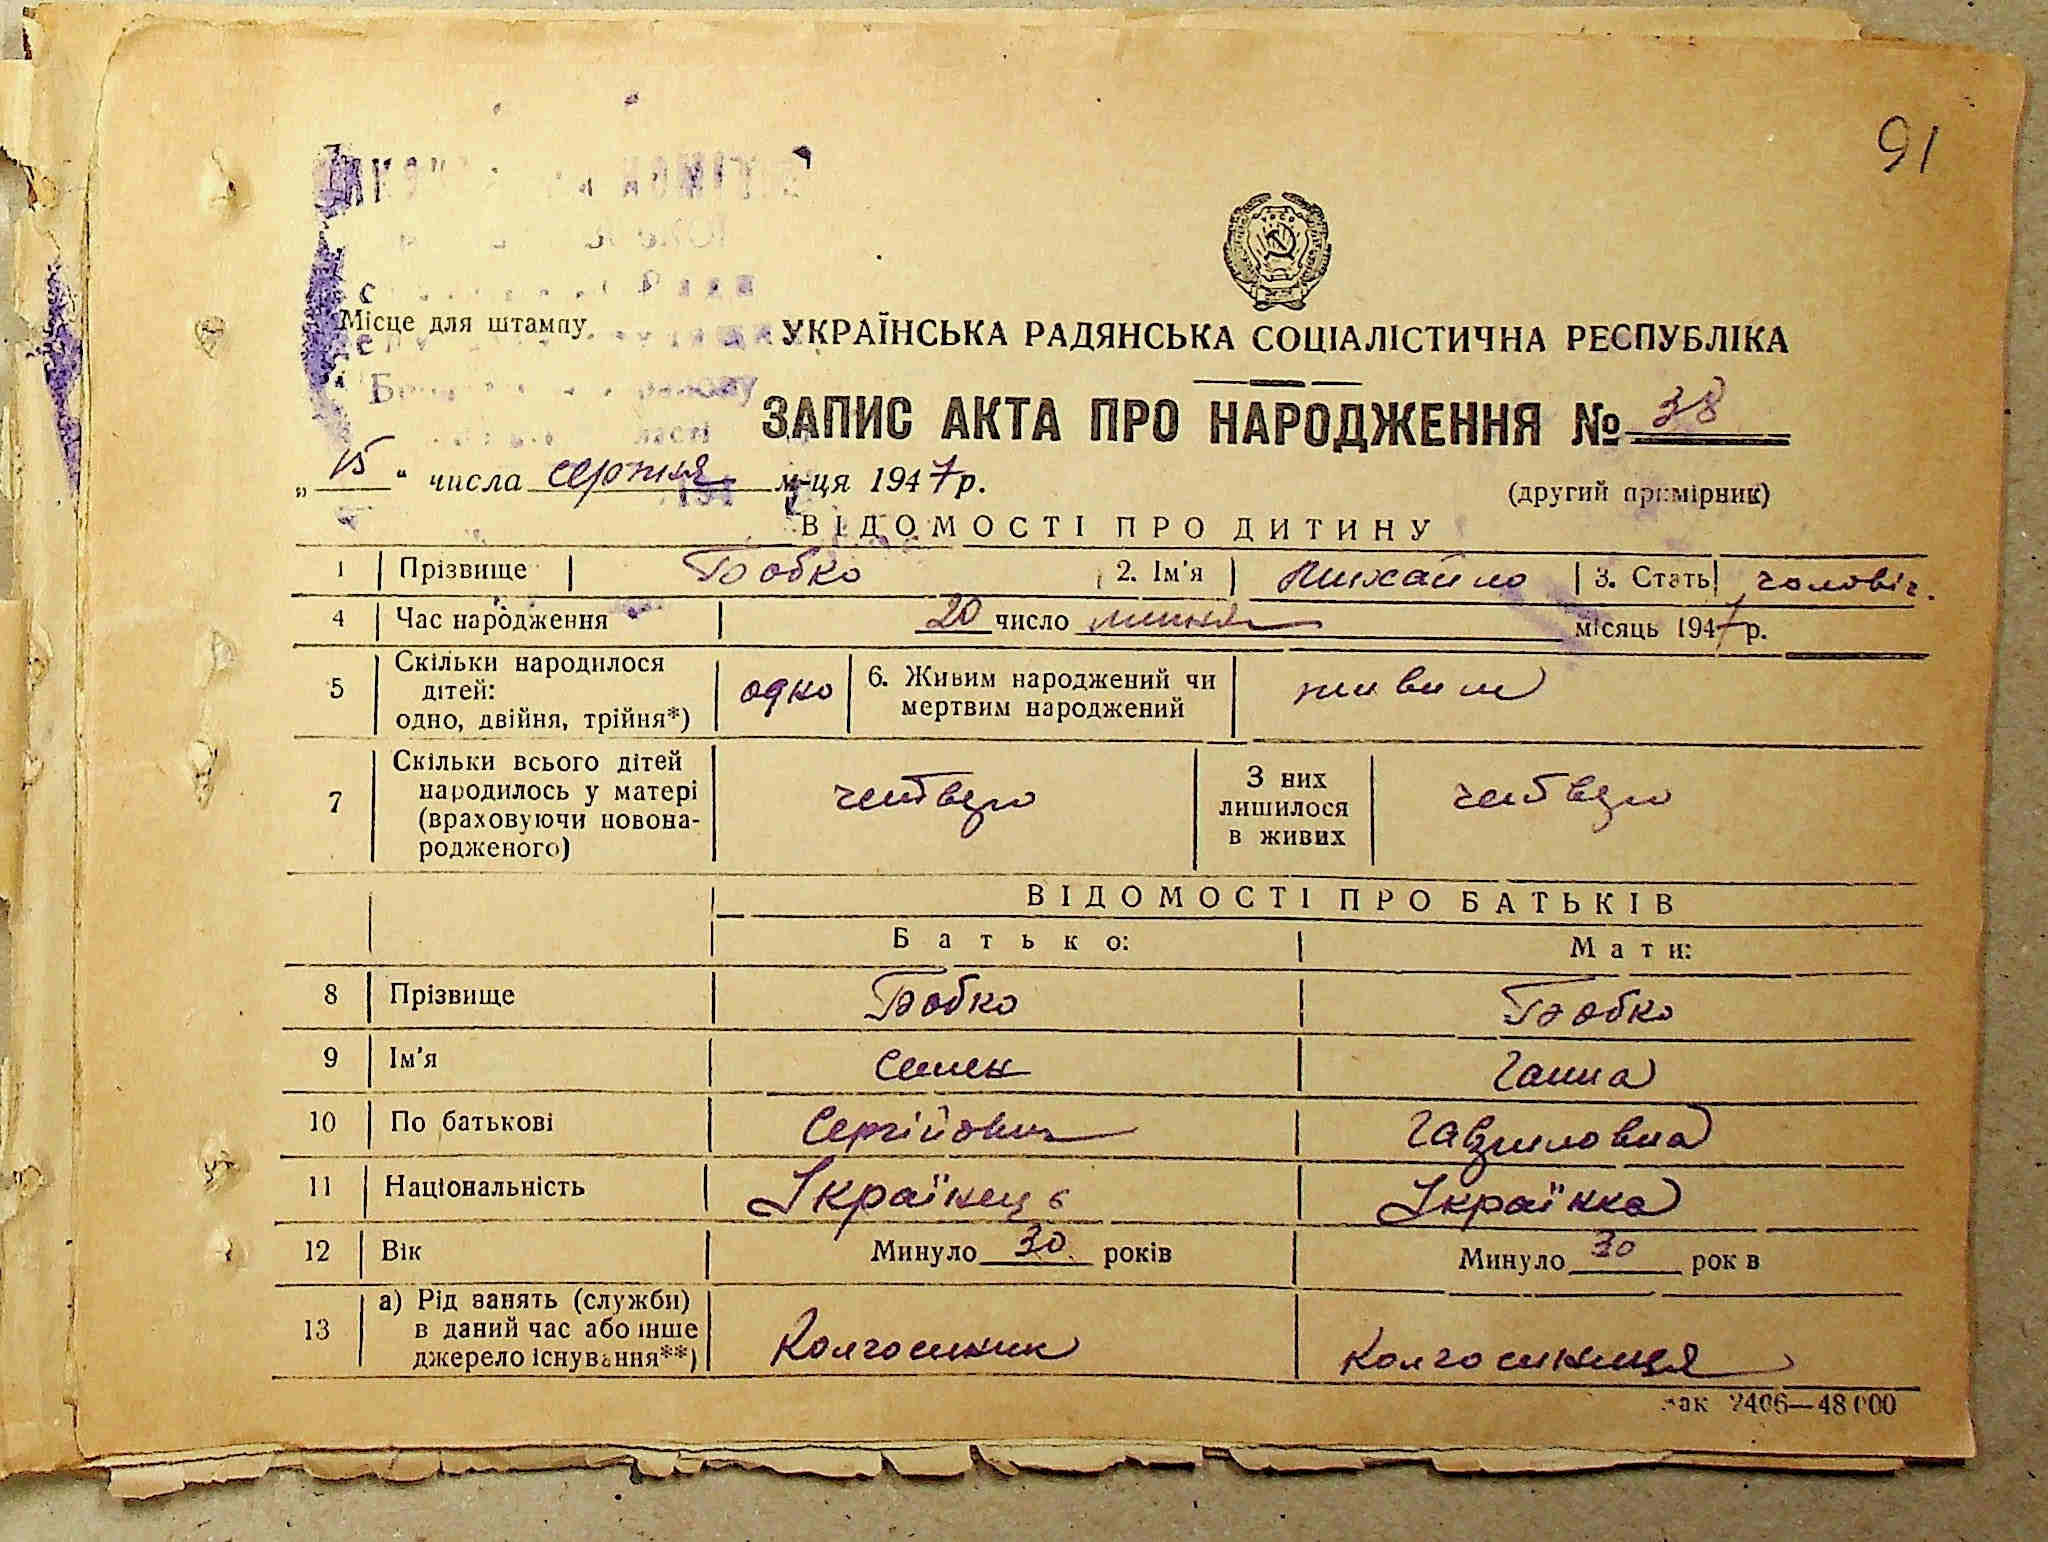 91
Місце для штампу.
УКРАЇНСЬКА РАДЯНСЬКА СОЦІАЛІСТИЧНА РЕСПУБЛІКА
ЗАПИС АКТА ПРО НАРОДЖЕННЯ № 38
„15“ числа серпня м-ця 1947 р.
(другий примірник)
ВІДОМОСТІ ПРО ДИТИНУ
1 Прізвище Бобко 2. Ім'я Михайло 3. Стать чоловіч.
4 Час народження 20 число липня місяць 1947 р.
5 Скільки народилося дітей: одно, двійня, трійня*) одно 6. Живим народжений чи мертвим народжений живим
7 Скільки всього дітей народилось у матері (враховуючи новонародженого) четверо З них лишилося в живих четверо
ВІДОМОСТІ ПРО БАТЬКІВ
Батько: Мати:
8 Прізвище Бобко Бобко
9 Ім'я Семен Ганна
10 По батькові Сергійович Гавриловна
11 Національність Українець Українка
12 Вік Минуло 30 років Минуло 30 рок в
13 а) Рід занять (служби) в даний час або інше джерело існування**) Колгоспник Колгоспниця
зак 2406—48000